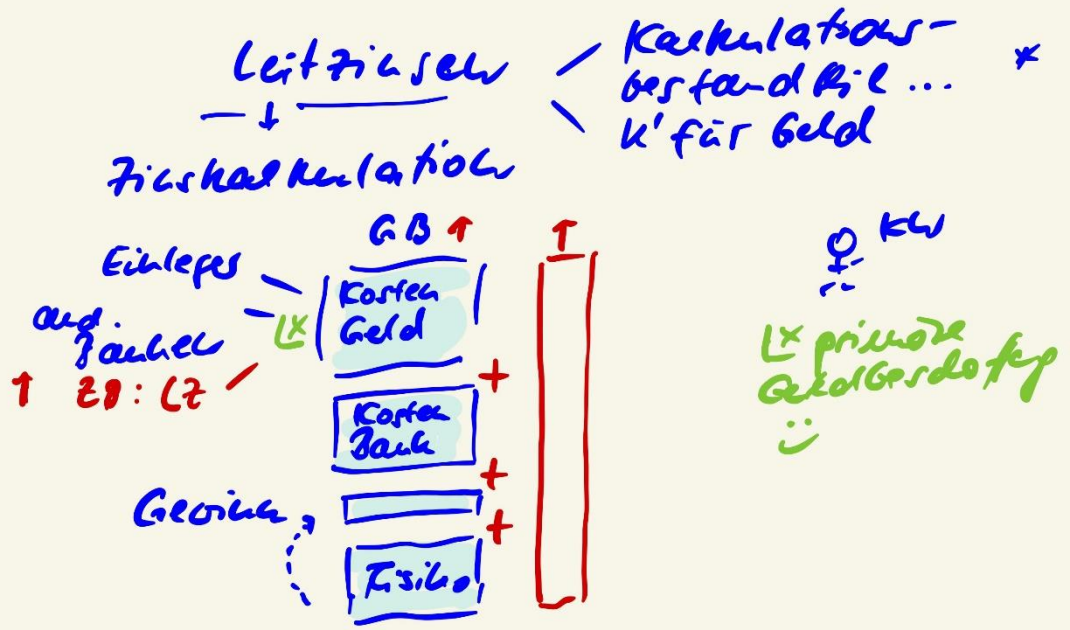 Leitzinsen
Kalkulations-
bestandteil ... *
K' für Geld
Zinskalkulation
GB ↑
↑
Einleger
and.
Banken
↑ ZB: LZ
Kosten
Geld
+
Kosten
Bank
+
Gewinn
+
Risiko
primäre
Geldbeschaffg